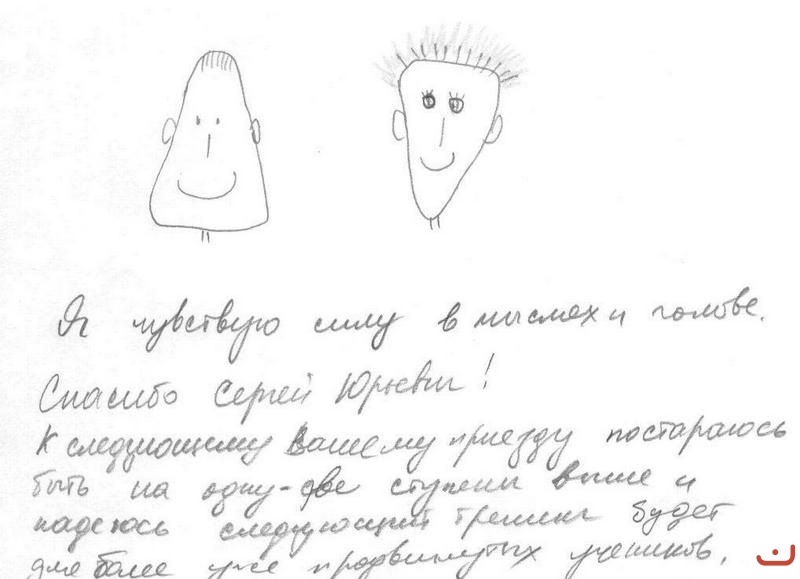 Я чувствую силу в мыслях и голове.
Спасибо Сергей Юрьевич!
К следующему Вашему приезду постараюсь
быть на одну-две ступени выше и
надеюсь следующий тренинг будет
для более уже продвинутых учеников.